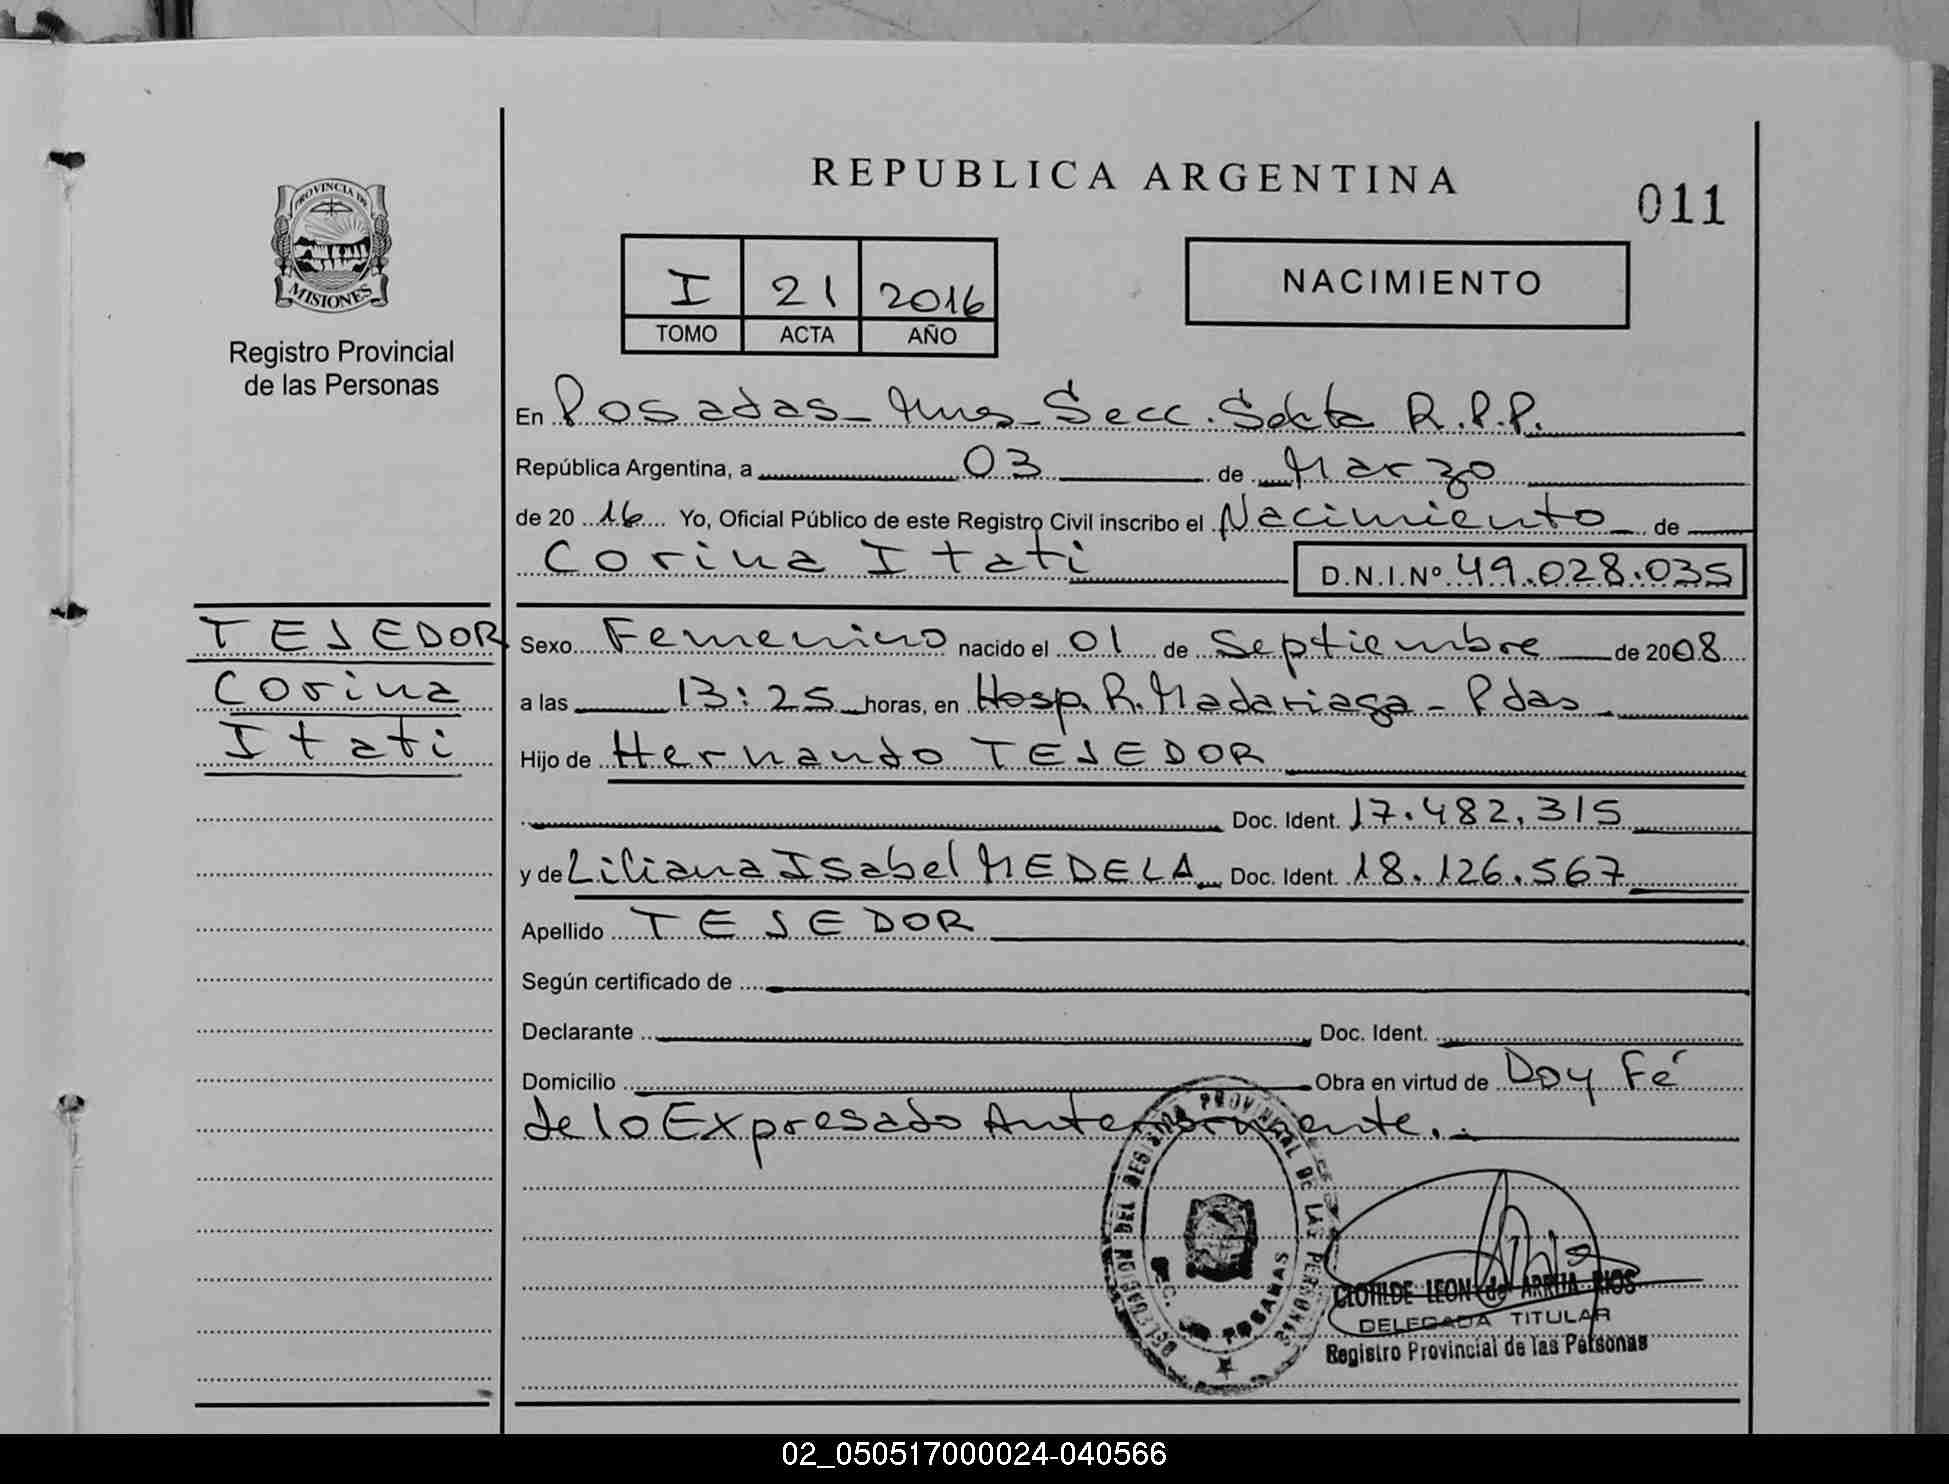 REPUBLICA ARGENTINA
011
PROVINCIA DE
MISIONES
Registro Provincial
de las Personas
I 21 2016
TOMO ACTA AÑO
NACIMIENTO
En Posadas - Mnes - Secc. Sexta R.P.P.
República Argentina, a 03 de Marzo
de 2016 Yo, Oficial Público de este Registro Civil inscribo el Nacimiento de
Corina Itati D.N.I.Nº 49.028.035
TEJEDOR
Corina
Itati
Sexo Femenino nacido el 01 de Septiembre de 2008
a las 13:25 horas, en Hosp. R. Madariaga - Pdas
Hijo de Hernando TEJEDOR
Doc. Ident. 17.482.315
y de Liliana Isabel MEDELA Doc. Ident. 18.126.567
Apellido TEJEDOR
Según certificado de
Declarante Doc. Ident.
Domicilio Obra en virtud de Doy Fé
de lo Expresado Anteriormente.
DELEGACION DEL REGISTRO PROVINCIAL DE LAS PERSONAS
POSADAS
CLOTILDE LEON de ARRUA RIOS
DELEGADA TITULAR
Registro Provincial de las Personas
02_050517000024-040566